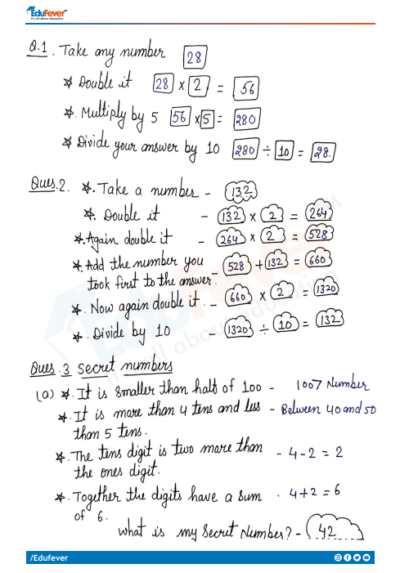 EduFever
It's all about education
Q.1. Take any number 28
* Double it 28 × 2 = 56
* Multiply by 5 56 × 5 = 280
* Divide your answer by 10 280 ÷ 10 = 28.
Ques.2. *. Take a number - 132
*. Double it - 132 × 2 = 264
*. Again double it - 264 × 2 = 528
*. Add the number you - 528 + 132 = 660
took first to the answer.
*. Now again double it. - 660 × 2 = 1320
*. Divide by 10 - 1320 ÷ 10 = 132
Ques.3 Secret numbers
(a) *. It is smaller than half of 100 - 100? Number
*. It is more than 4 tens and less - Between 40 and 50
than 5 tens.
*. The tens digit is two more than - 4-2 = 2
the ones digit.
*. Together the digits have a sum . 4+2 = 6
of 6.
What is my Secret Number? - 42
/Edufever